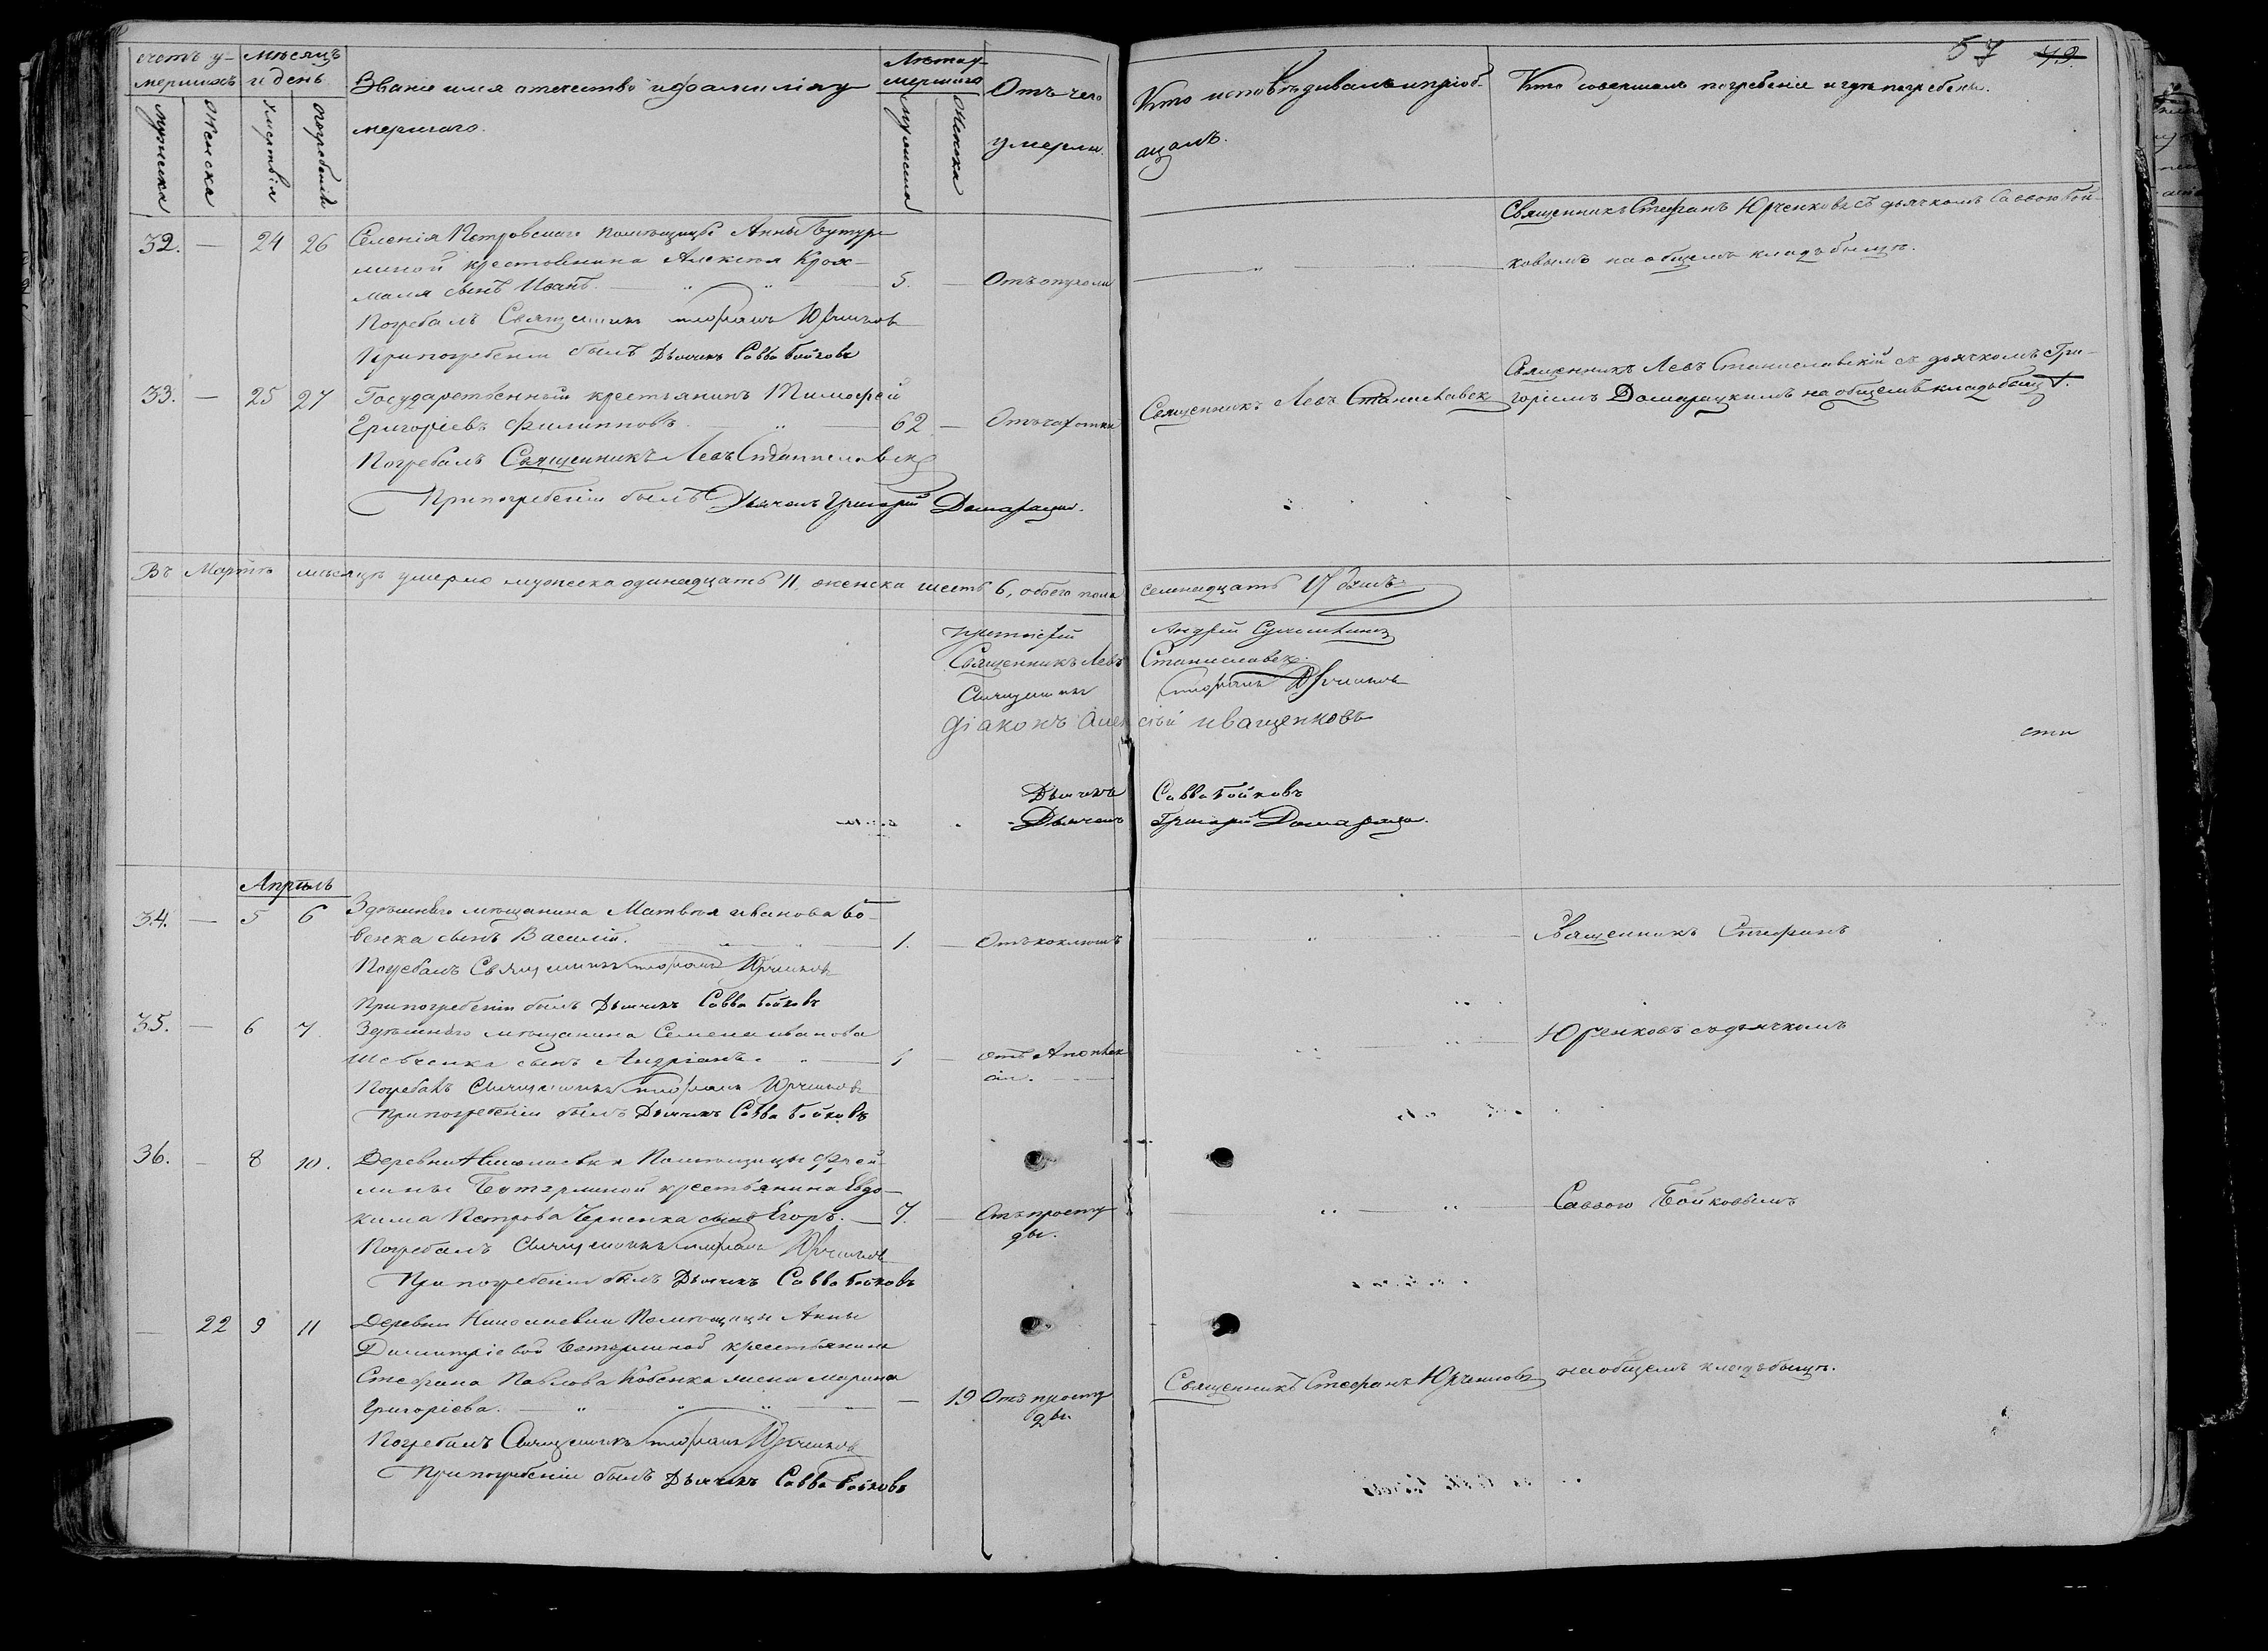 57 49.
счетъ у-
мершихъ
мѣсяцъ
и день
Званіе имя отечество и фамилія у
мершаго.
Лѣта у-
мершаго
Отъ чего
умерли.
Кто исповѣдивалъ и пріоб-
щалъ.
Кто совершалъ погребеніе и гдѣ погребены.
мужеска
женска
смерти
погребенія
мужеска
женска
32. — 24 26
Селенія Петровскаго помѣщицы Анны Бутур
линой крестьянина Алексѣя Крох-
маля сынъ Иванъ. — 5. — Отъ опухоли
Священникъ Стефанъ Юрченковъ съ дьячкомъ Саввою Бой-
ковымъ на общемъ кладбищѣ.
Погребалъ Священникъ Стефанъ Юрченковъ
При погребеніи былъ Дьячекъ Савва Бойковъ
33. — 25 27
Государственный крестьянинъ Тимофей
Григорьевъ Филипповъ — 62 — Отъ чахотки
Священникъ Левъ Станиславск
Священникъ Левъ Станиславскій съ дьячкомъ Гри-
горіемъ Домарацкимъ на общемъ кладбищѣ.
Погребалъ Священникъ Левъ Станиславск
При погребеніи былъ Дьячекъ Григорій Домарацкій.
Въ Мартѣ мѣсяцѣ умерло мужеска одинадцать 11, женска шесть 6, обоего пола семнадцать 17 душъ.
Протоіерей Андрей
Священникъ Левъ Станиславск
Священникъ Стефанъ Юрченковъ
Діаконъ Алексѣй Иващенковъ
Дьячекъ Савва Бойковъ
Дьячекъ Григорій Домарацкій.
Апрѣль
34. — 5 6
Здѣшняго мѣщанина Матвѣя Иванова Бо-
венка сынъ Василій. — 1. — Отъ коклюшъ
Священникъ Стефанъ
Погребалъ Священникъ Стефанъ Юрченковъ
При погребеніи былъ Дьячекъ Савва Бойковъ
35. — 6 7
Здѣшняго мѣщанина Семена Иванова
Шевченка сынъ Андріанъ. — 1 — отъ Апоплек
сіи.
Юрченковъ съ дьячкомъ
Погребалъ Священникъ Стефанъ Юрченковъ
При погребеніи былъ Дьячекъ Савва Бойковъ
36. — 8 10.
Деревни Николаевки Помѣщицы Фрей-
лины Бутурлиной крестьянина Евдо-
кима Петрова Черненка сынъ Егоръ. — 7. — Отъ просту
ды.
Саввою Бойковымъ
Погребалъ Священникъ Стефанъ Юрченковъ
При погребеніи былъ Дьячекъ Савва Бойковъ
— 22 9 11
Деревни Николаевки Помѣщицы Анны
Димитріевой Бутурлиной крестьянина
Стефана Павлова Кобенка жена Марина
Григоріева. — 19 Отъ просту
ды.
Священникъ Стефанъ Юрченковъ
на общемъ кладбищѣ.
Погребалъ Священникъ Стефанъ Юрченковъ
При погребеніи былъ Дьячекъ Савва Бойковъ